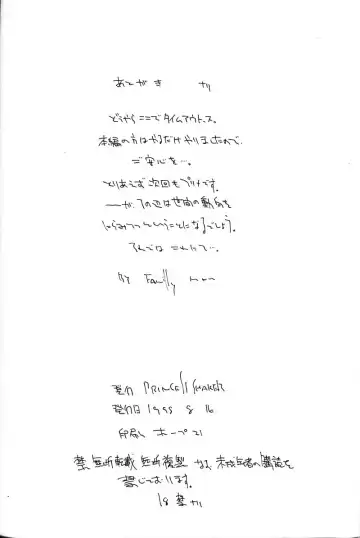 あとがき
どうやらここでタイムアウトっス。
本編の方はやるだけやりましたので、
ご安心を…。
とりあえず次回もプリメです。
が、その辺は世間の動向を
にらみつつということになるでしょう。
それでは これにて…。
By Family
発行 PRINCESS MAKER
発行日 1995 8 16
印刷 ホープ21
禁 無断転載 無断複製 なお、未成年者の購読を
禁じております。
18禁